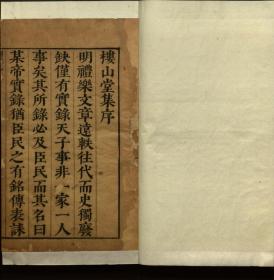 樓山堂集序
明禮樂文章遠軼往代而史獨廢
缺僅有實錄天子事非一家一人
事矣其所錄必及臣民而其名曰
某帝實錄猶臣民之有銘傳表誄